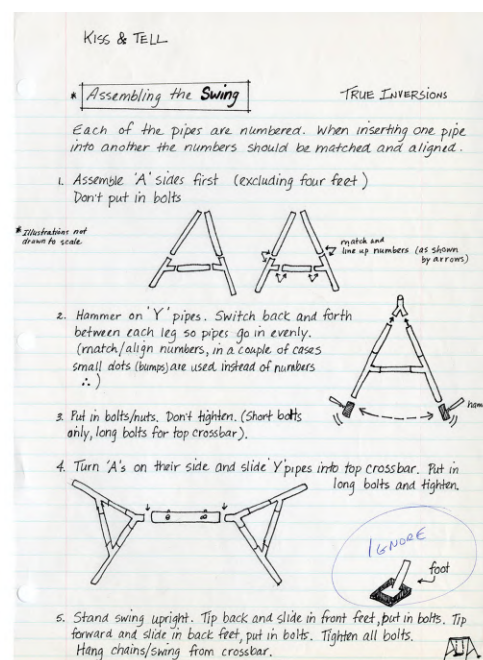 KISS & TELL
* Assembling the Swing
TRUE INVERSIONS
Each of the pipes are numbered. When inserting one pipe
into another the numbers should be matched and aligned.
1. Assemble 'A' sides first (excluding four feet)
Don't put in bolts
* Illustrations not
drawn to scale
match and
line up numbers (as shown
by arrows)
2. Hammer on 'Y' pipes. Switch back and forth
between each leg so pipes go in evenly.
(match/align numbers, in a couple of cases
small dots (bumps) are used instead of numbers
∴)
ham
3. Put in bolts/nuts. Don't tighten. (Short bolts
only, long bolts for top crossbar).
4. Turn 'A's on their side and slide 'Y' pipes into top crossbar. Put in
long bolts and tighten.
IGNORE
foot
5. Stand swing upright. Tip back and slide in front feet, put in bolts. Tip
forward and slide in back feet, put in bolts. Tighten all bolts.
Hang chains/swing from crossbar.